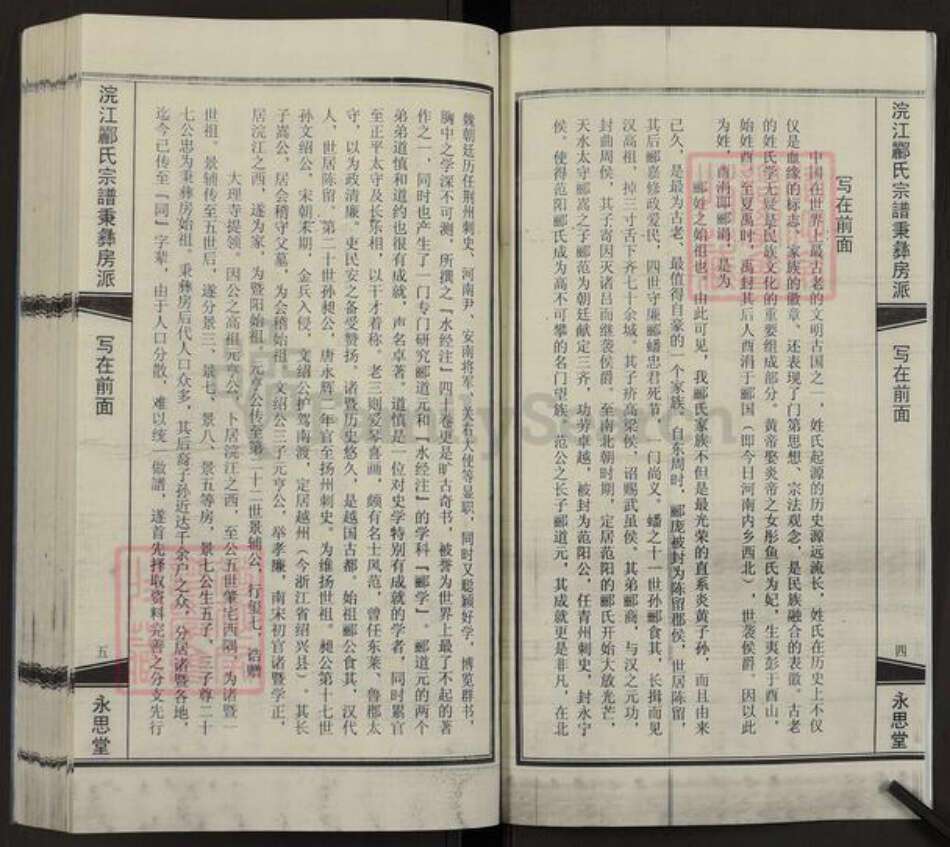 浣江酈氏宗譜秉彝房派
写在前面
四
永思堂
写在前面
中国在世界上最古老的文明古国之一，姓氏起源的历史源远流长，姓氏在历史上不仅
仅是血缘的标志、家族的徽章、还表现了门第思想、宗法观念，是民族融合的表徵。古老
的姓氏学无疑是民族文化的重要组成部分。黄帝娶炎帝之女彤鱼氏为妃，生夷彭于酉山，
始姓酉，至夏禹时，禹封其后人酉涓于郦国（即今日河南内乡西北），世袭侯爵。因以此
为姓，酉涓即郦涓，是为
郦姓之始祖也。由此可见，我郦氏家族不但是最光荣的直系炎黄子孙，而且由来
已久，是最为古老、最值得自家的一个家族。自东周时，郦庞被封为陈留郡侯，世居陈留，
其后郦嘉修政爱民，四世守廉郦蟠忠君死节，门尚义。蟠之十一世孙郦食其，长揖而见
汉高祖，掉三寸舌下齐七十余城。其子疥高梁侯，诏赐武虽侯、其弟郦商，与汉之元功，
封曲周侯，其子寄因灭诸吕而继袭侯爵。至南北朝时期，定居范阳的郦氏开始大放光芒，
天水太守郦嵩之子郦范为朝廷献定三齐，功劳卓越，被封为范阳公，任青州刺史，封永宁
侯。使得范阳郦氏成为高不可攀的名门望族。范公之长子郦道元，其成就更是非凡，在北
浣江酈氏宗譜秉彝房派
写在前面
五
永思堂
魏朝廷历任荆州刺史，河南尹，安南将军，关右大使等显职，同时又聪颖好学，博览群书，
胸中之学深不可测，所撰之『水经注』四十卷更是旷古奇书，被誉为世界上最了不起的著
作之一，同时也产生了一门专门研究郦道元和『水经注』的学科『郦学』。郦道元的两个
弟弟道慎和道约也很有成就，声名卓著。道慎是一位对史学特别有成就的学者，同时累官
至正平太守及长乐相，以干才着称。老三则爱琴喜画，颇有名士风范，曾任东莱、鲁郡太
守，以为政清廉。吏民安之备受赞扬。诸暨历史悠久，是越国古都。始祖郦公食其，汉代
人、世居陈留。第二十世孙昶公，唐永辉二年官至扬州刺史。为维扬世祖。昶公第十七世
孙文绍公，宋朝末期，金兵入侵，文绍公护驾南渡，定居越州（今浙江省绍兴县）。其长
子嵩公，居会稽守父墓，为会稽始祖。文绍公三子元亨公，举孝廉，南宋初官诸暨学正，
居浣江之西，遂为家，为暨阳始祖。元亨公传至第二十二世景辅公，行玺七，诰赠
大理寺提领。因公之高祖元亨公，卜居浣江之西，至公五世肇宅西隅，为诸暨一
世祖。景辅传至五世后，遂分景三、景七、景八、景五等房，景七公生五子，三子尊二十
七公忠为秉彝房始祖。秉彝房后代人口众多，其后裔子孙近达千余户之众，分居诸暨各地，
迄今已传至『同』字辈，由于人口分散，难以统一做譜，遂首先择取资料完善之分支先行